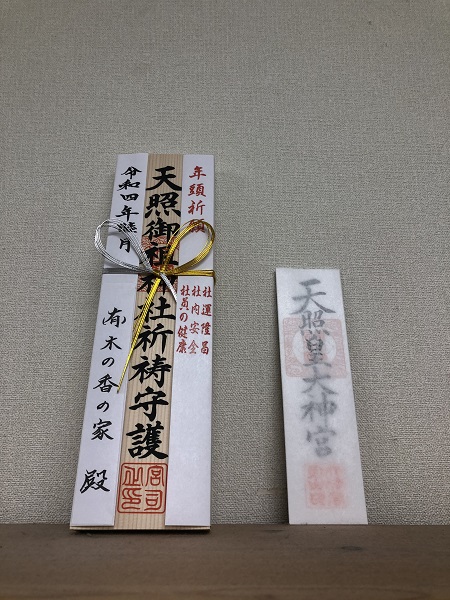 年頭祈願
社運隆昌
社内安全
社員の健康
天照御祖神社祈祷守護
宮司之印
令和四年睦月
㈲木の香の家 殿
天照皇大神宮